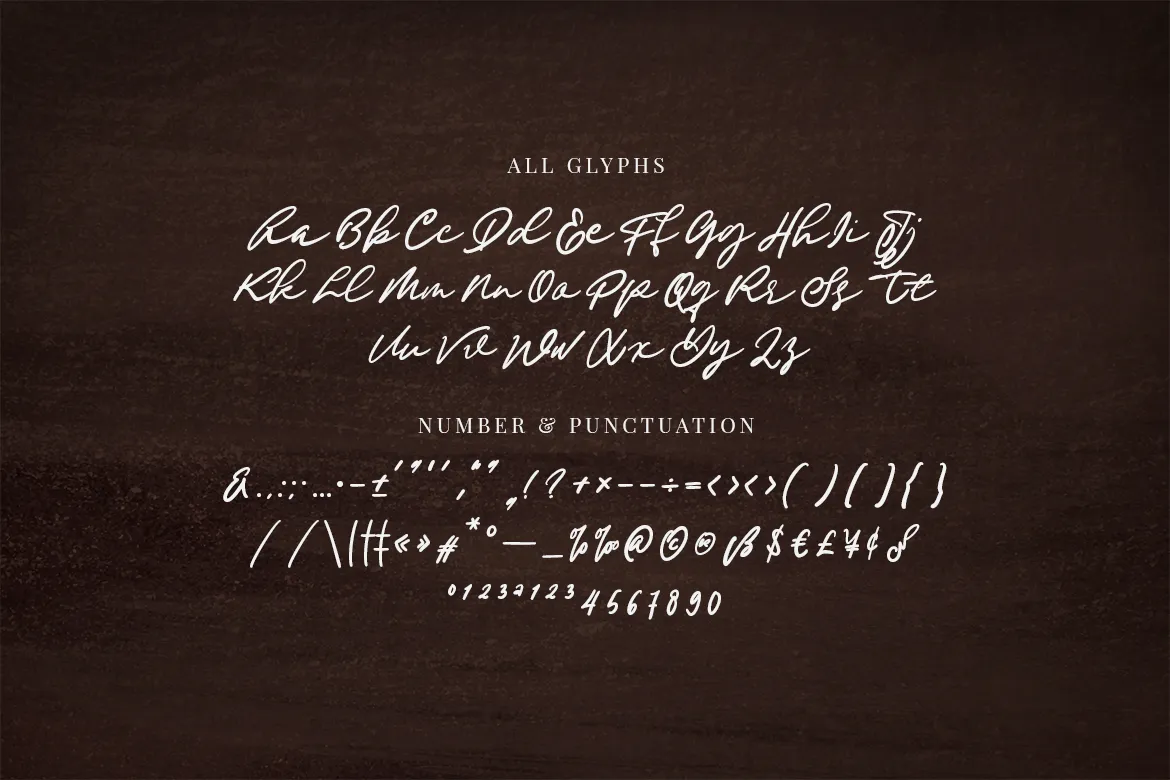 ALL GLYPHS
Aa Bb Cc Dd Ee Ff Gg Hh Ii Jj
Kk Ll Mm Nn Oo Pp Qq Rr Ss Tt
Uu Vv Ww Xx Yy Zz
NUMBER & PUNCTUATION
& . , : ; · … • – ± ' " ' ' , “ ” „ ! ? + × - - ÷ = < > < > ( ) [ ] { }
/ / \ | ‡ « » # * ° — _ % ‰ @ © ® ß $ € £ ¥ ¢
⁰ ¹ ² ³ ¹ ² ³ 4 5 6 7 8 9 0